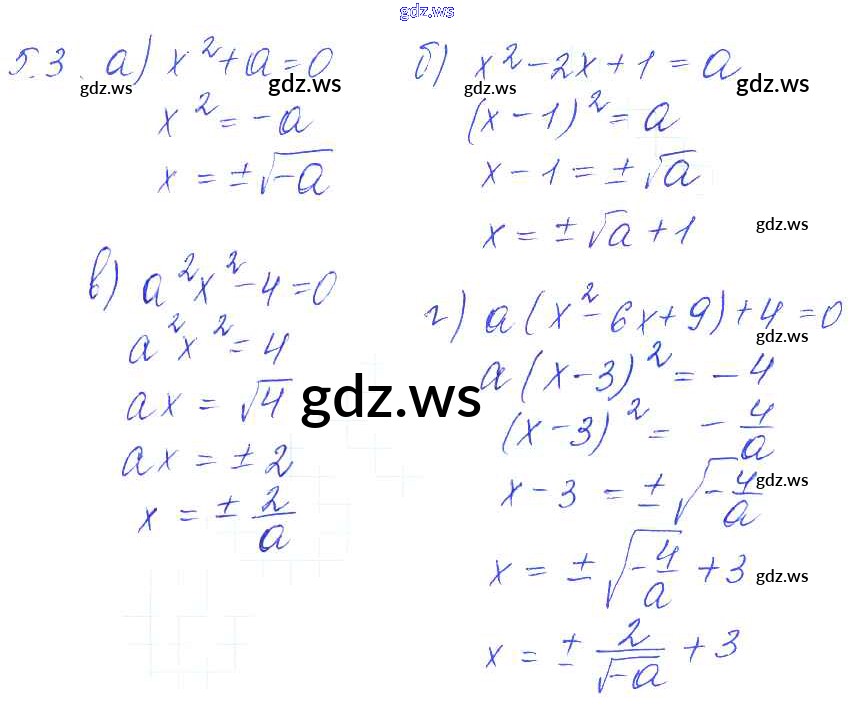 gdz.ws
5.3. а) x² + a = 0
gdz.ws gdz.ws
x² = -a
x = ±√-a
б) x² - 2x + 1 = a
gdz.ws gdz.ws
(x - 1)² = a
x - 1 = ±√a
gdz.ws
x = ±√a + 1
в) a²x² - 4 = 0
a²x² = 4
ax = √4
gdz.ws
ax = ±2
x = ± 2/a
г) a(x² - 6x + 9) + 4 = 0
gdz.ws
a(x - 3)² = -4
(x - 3)² = - 4/a
gdz.ws
x - 3 = ±√-4/a
x = ±√-4/a + 3
gdz.ws
x = ± 2/√-a + 3